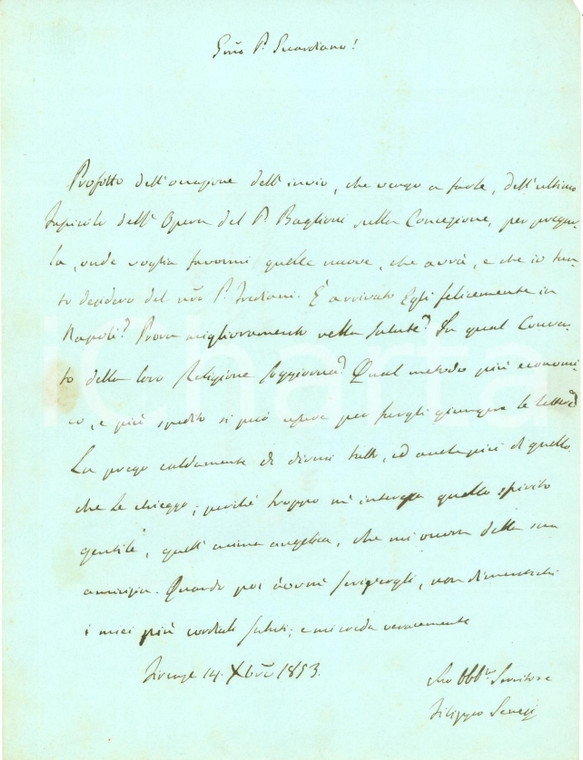 P. Guardiano!
Profitto dell'occasione dell'invio, che vengo a farle, dell'ultimo
fascicolo dell'Opera del P. Baglioni sulla Concezione, per pregar-
la, onde voglia favorirmi quelle nuove, che avrà, e che io tan-
to desidero del P. Frediani. È arrivato Egli felicemente in
Napoli? Prova miglioramento nella salute? In qual Conven-
to della loro Religione soggiorna? Qual metodo più economi-
co, e più spedito si può usare per fargli giungere le lettere?
La prego caldamente di dirmi tutto, ed anche più di quello
che Le chieggo; perchè troppo m'interessa quello spirito
gentile, quell'anima angelica, che mi onora della sua
amicizia. Quando poi dovrà scrivergli, non dimentichi
i miei più cordiali saluti; e mi creda veramente
Firenze 14. Xbre 1853.
Suo Servitore
Filippo
iCharta